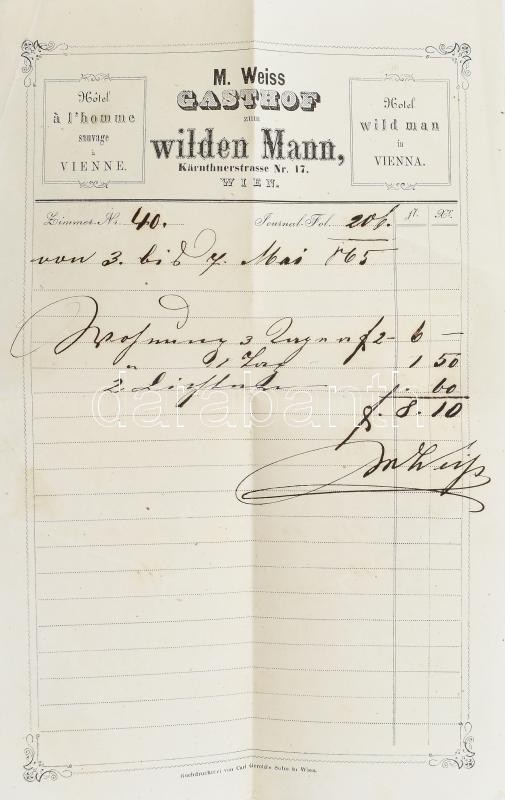 M. Weiss
GASTHOF
zum
wilden Mann,
Kärnthnerstrasse Nr. 17.
WIEN.
Hôtel
à l'homme
sauvage
à
VIENNE.
Hotel
wild man
in
VIENNA.
Zimmer-Nr. 40. Journal-Fol. 206. fl. Xr.
von 3. bis 7. Mai 865
Wohnung 3 Tage a f 2 - 6 —
" 1 Tag 1 50
2 f. 60
f. 8. 10
M Weiss
darabanth
Buchdruckerei von Carl Gerold's Sohn in Wien.